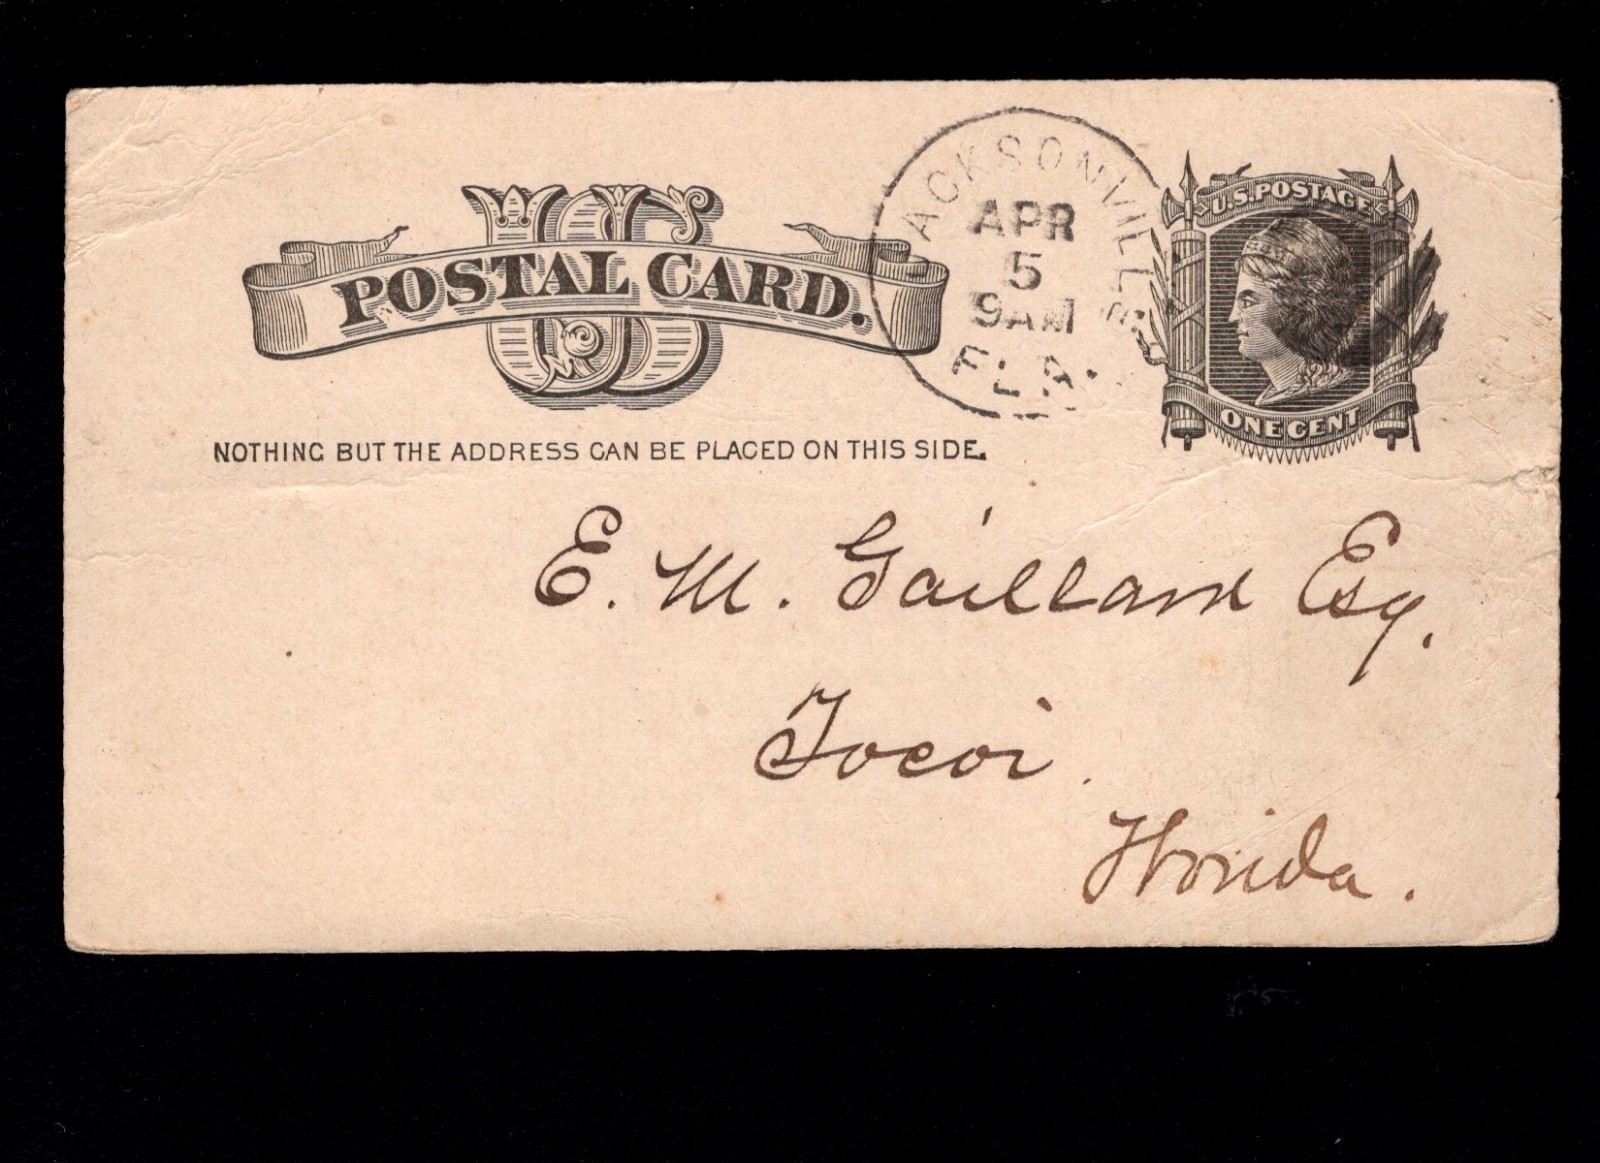 US
POSTAL CARD.
NOTHING BUT THE ADDRESS CAN BE PLACED ON THIS SIDE.
JACKSONVILLE
APR
5
9AM
FLA.
U.S. POSTAGE
ONE CENT
E. M. Gaillard Esq.
Tocoi.
Florida.